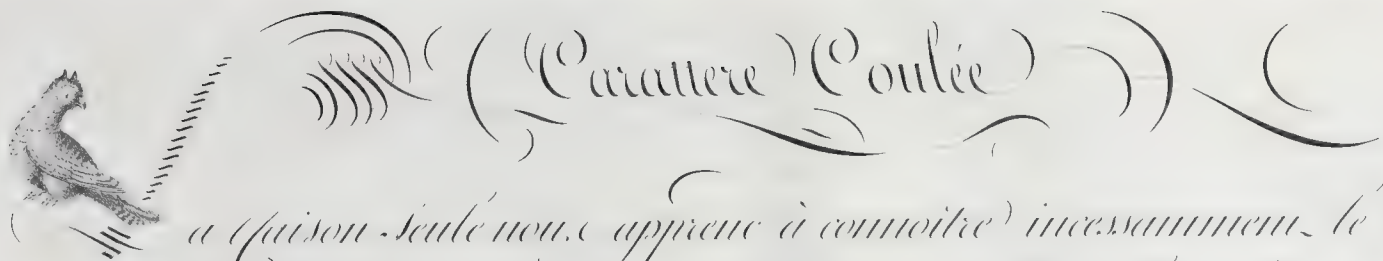 Carattere Coulée
La Raison seule nous apprend à connoitre incessamment le